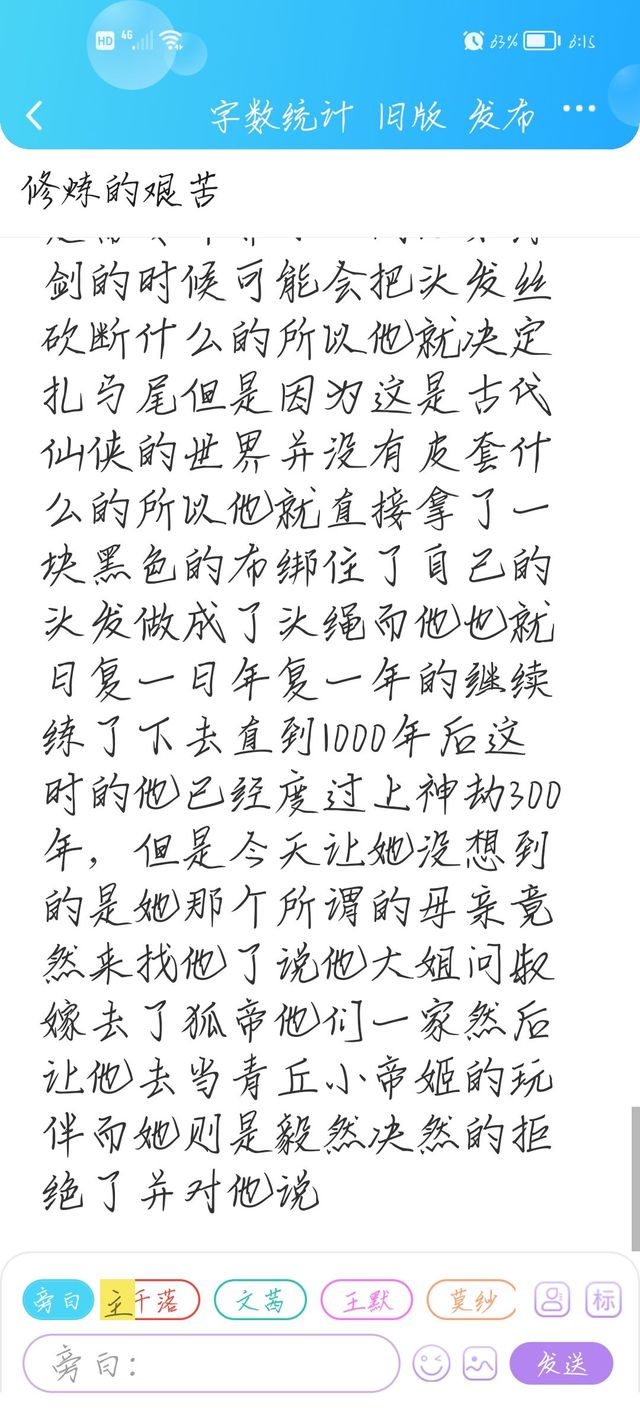 HD 4G 63% 6:15
字数统计 旧版 发布
修炼的艰苦
剑的时候可能会把头发丝
砍断什么的所以他就决定
扎马尾但是因为这是古代
仙侠的世界并没有皮套什
么的所以他就直接拿了一
块黑色的布绑住了自己的
头发做成了头绳而他也就
日复一日年复一年的继续
练了下去直到1000年后这
时的他已经度过上神劫300
年，但是今天让她没想到
的是她那个所谓的母亲竟
然来找他了说他大姐问
嫁去了狐帝他们一家然后
让他去当青丘小帝姬的玩
伴而她则是毅然决然的拒
绝了并对他说
旁白 主 千落 文茜 王默 莫纱 标
旁白： 发送